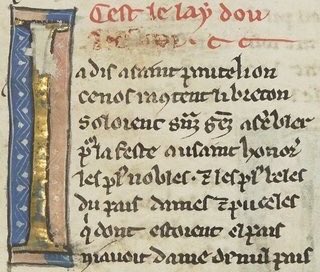 Cest le lay dou
Iadis a saint pantelion
ce nos racontent li breton
Soloient gr̃z gẽz asẽbler
p̃ la feste au saint honor̃
les plꝰ nobles · ⁊ les plꝰ beles
du pais dames ⁊ puceles
q̇ dont estoient el pais
niavoit dame de nul pris